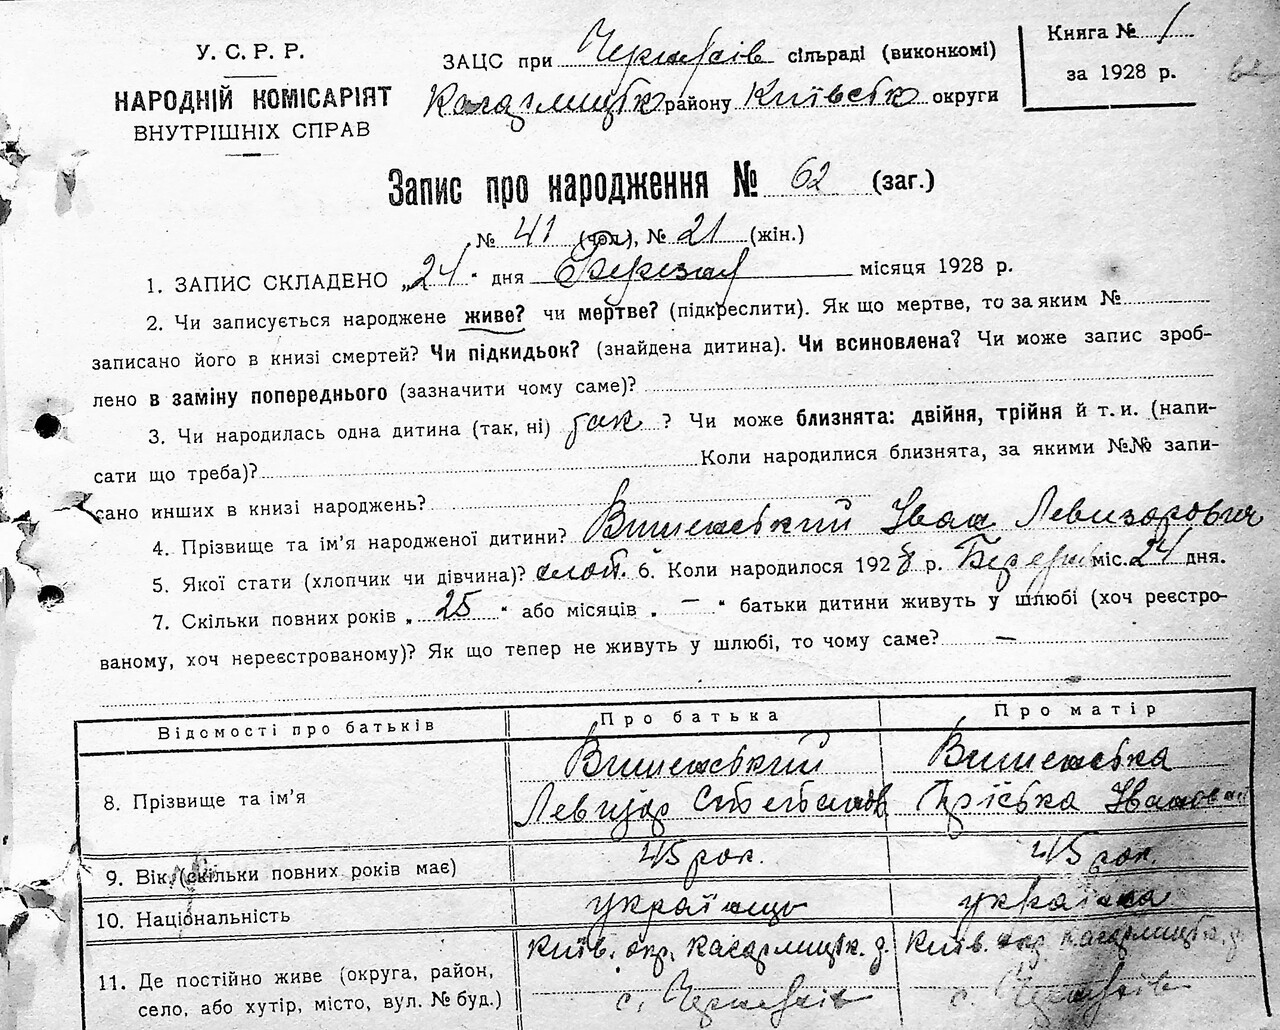 У. С. Р. Р.
НАРОДНІЙ КОМІСАРІЯТ
ВНУТРІШНІХ СПРАВ
ЗАЦС при сільраді (виконкомі)
Кагарлицьк району Київськ округи
Книга № 1
за 1928 р.
62
Запис про народження № 62 (заг.)
№ 41 (чол.), № 21 (жін.)
1. ЗАПИС СКЛАДЕНО „24" дня Березня місяця 1928 р.
2. Чи записується народжене живе? чи мертве? (підкреслити). Як що мертве, то за яким №
записано його в книзі смертей? Чи підкидьок? (знайдена дитина). Чи всиновлена? Чи може запис зроб-
лено в заміну попереднього (зазначити чому саме)?
3. Чи народилась одна дитина (так, ні) так ? Чи може близнята: двійня, трійня й т. и. (напи-
сати що треба)? Коли народилися близнята, за якими №№ запи-
сано инших в книзі народжень?
4. Прізвище та ім'я народженої дитини? Вишенський Іван Левизорович
5. Якої стати (хлопчик чи дівчина)? хлоп. 6. Коли народилося 1928 р. міс. 24 дня.
7. Скільки повних років „ 25 " або місяців „ — " батьки дитини живуть у шлюбі (хоч реєстро-
ваному, хоч нереєстрованому)? Як що тепер не живуть у шлюбі, то чому саме? —
Відомості про батьків Про батька Про матір
8. Прізвище та ім'я Вишенський Вишенська
Левизар Степанов Пріська Іванов
9. Вік (скільки повних років має) 45 рок. 45 рок.
10. Національність українць українка
11. Де постійно живе (округа, район, Київ. окр. Кагарлицьк. Київ. окр. Кагарлицьк.
село, або хутір, місто, вул. № буд.) с. с.